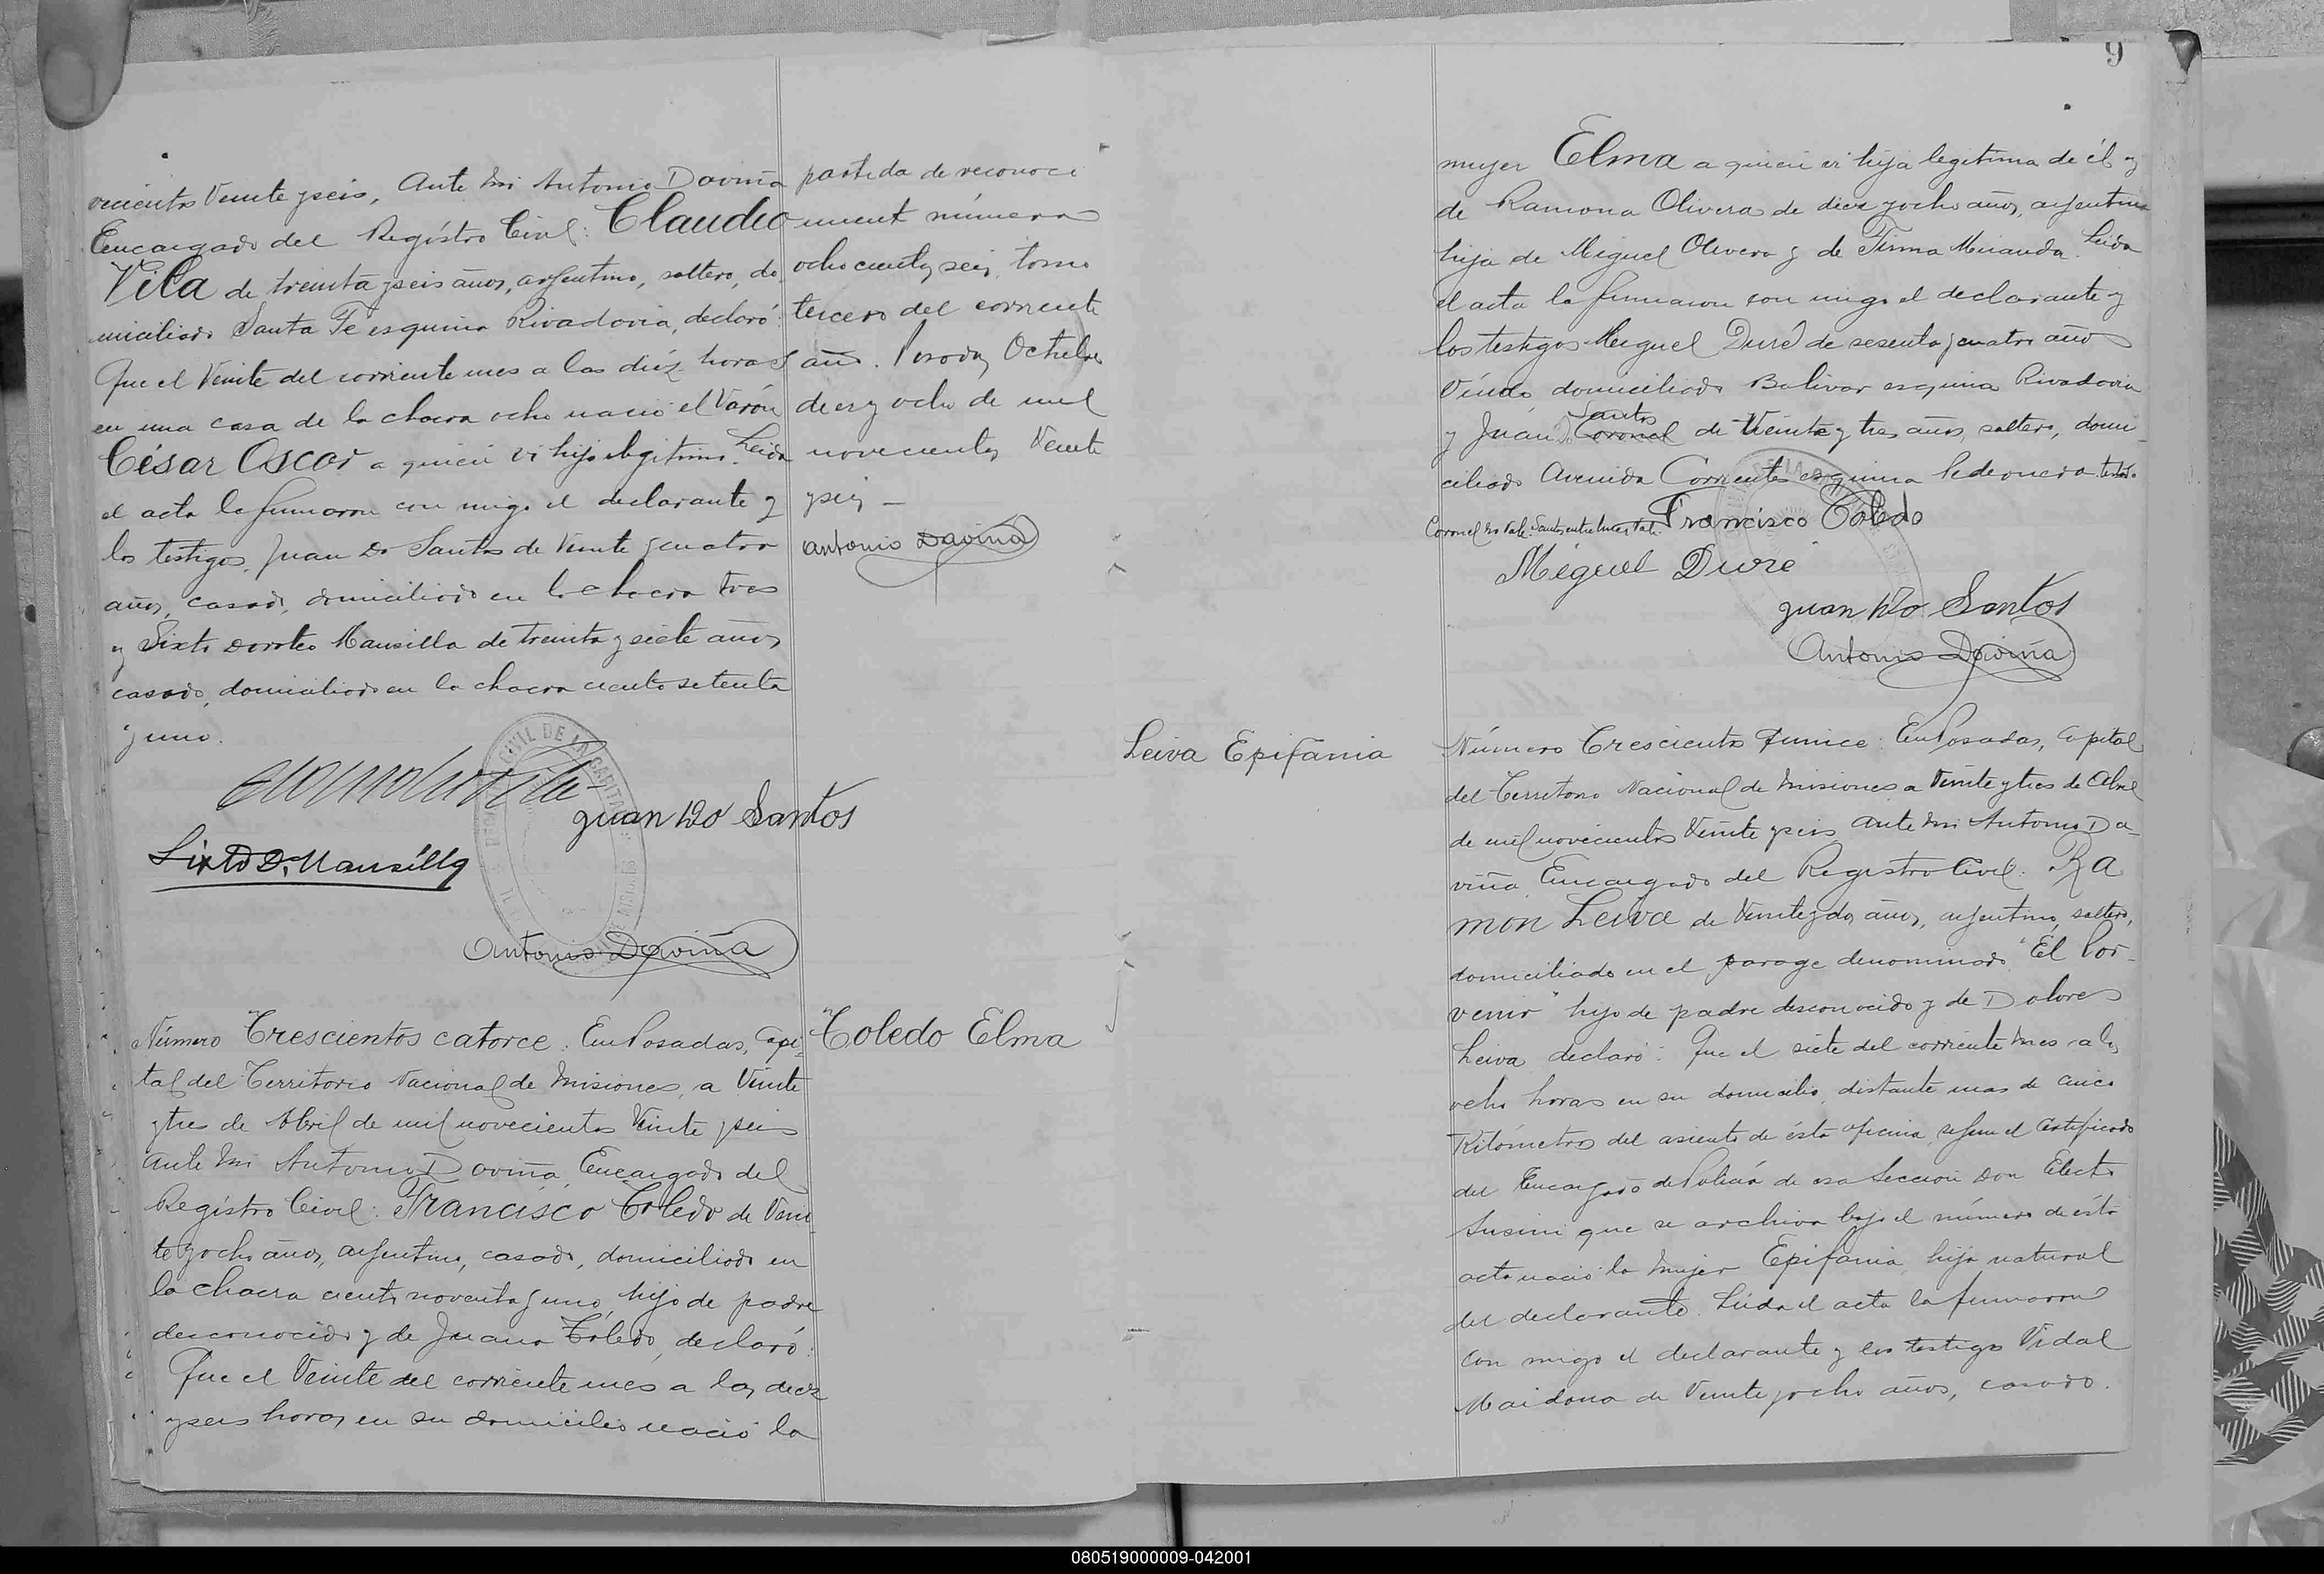 vecientos Veinte y seis, Ante mi Antonio Daviña
Encargado del Registro Civil: Claudio
Vila de treinta y seis años, argentino, soltero, do-
miciliado Santa Fe esquina Rivadavia, declaró:
Que el Veinte del corriente mes a las diéz horas
en una casa de la chacra ocho nació el Varón
César Oscar a quien vi hijo ilegitimo. Leida
el acta la firmaron con migo el declarante y
los testigos, Juan Do Santos de Veinte y cuatro
años, casado, domiciliado en la chacra tres
y Sixto Doroteo Mansilla de treinta y siete años,
casado, domiciliado en la chacra ciento setenta
y uno.
Juan Do Santos
Sixto D. Mansilla
Antonio Daviña
partida de reconoci
miento número
ochocientos seis, tomo
tercero del corriente
año. Posadas, Octubre
diez y ocho de mil
novecientos Veinte
y seis —
Antonio Daviña
Número Trescientos catorce: En Posadas, Capi-
tal del Territorio Nacional de Misiones, a Veinte
y tres de Abril de mil novecientos Veinte y seis
ante mi Antonio Daviña, Encargado del
Registro Civil: Francisco Toledo de Vein
te y ocho años, argentino, casado, domiciliado en
la chacra ciento noventa y uno, hijo de padre
desconocido y de Juana Toledo, declaró:
Que el Veinte del corriente mes a las diez
y seis horas, en su domicilio nació la
Toledo Elma
9
mujer Elma a quien vi hija legitima de él y
de Ramona Olivera de diez y ocho años, argentina
hija de Miguel Olivera y de Firma Miranda. Leida
el acta la firmaron con migo el declarante y
los testigos Miguel Duré de sesenta y cuatro años
Viudo domiciliado Bolivar esquina Rivadavia
Santos
y Juan Do Coronel de Veinte y tres años, soltero, domi-
ciliado Avenida Corrientes esquina Pedernera. test.
Coronel no vale. Santos, entre lineas, vale. Francisco Toledo
Miguel Duré
Juan Do Santos
Antonio Daviña
Leiva Epifania
Número Trescientos quince: En Posadas, Capital
del Territorio Nacional de Misiones a Veinte y tres de Abril
de mil novecientos Veinte y seis ante mi Antonio Da-
viña Encargado del Registro Civil: Ra
mon Leiva de Veinte y dos años, argentino, soltero,
domiciliado en el parage denominado "El Por-
venir" hijo de padre desconocido y de Dolores
Leiva declaró: Que el siete del corriente mes a las
ocho horas en su domicilio, distante mas de cinco
Kilómetros del asiento de ésta oficina, según el Certificado
del Encargado de Policia de esa Sección Don Electo
Susini que se archiva bajo el número de ésta
acta nació la mujer Epifania, hija natural
del declarante. Leida el acta la firmaron
con migo el declarante y los testigos Vidal
Maidana de Veinte y ocho años, casado.
080519000009-042001